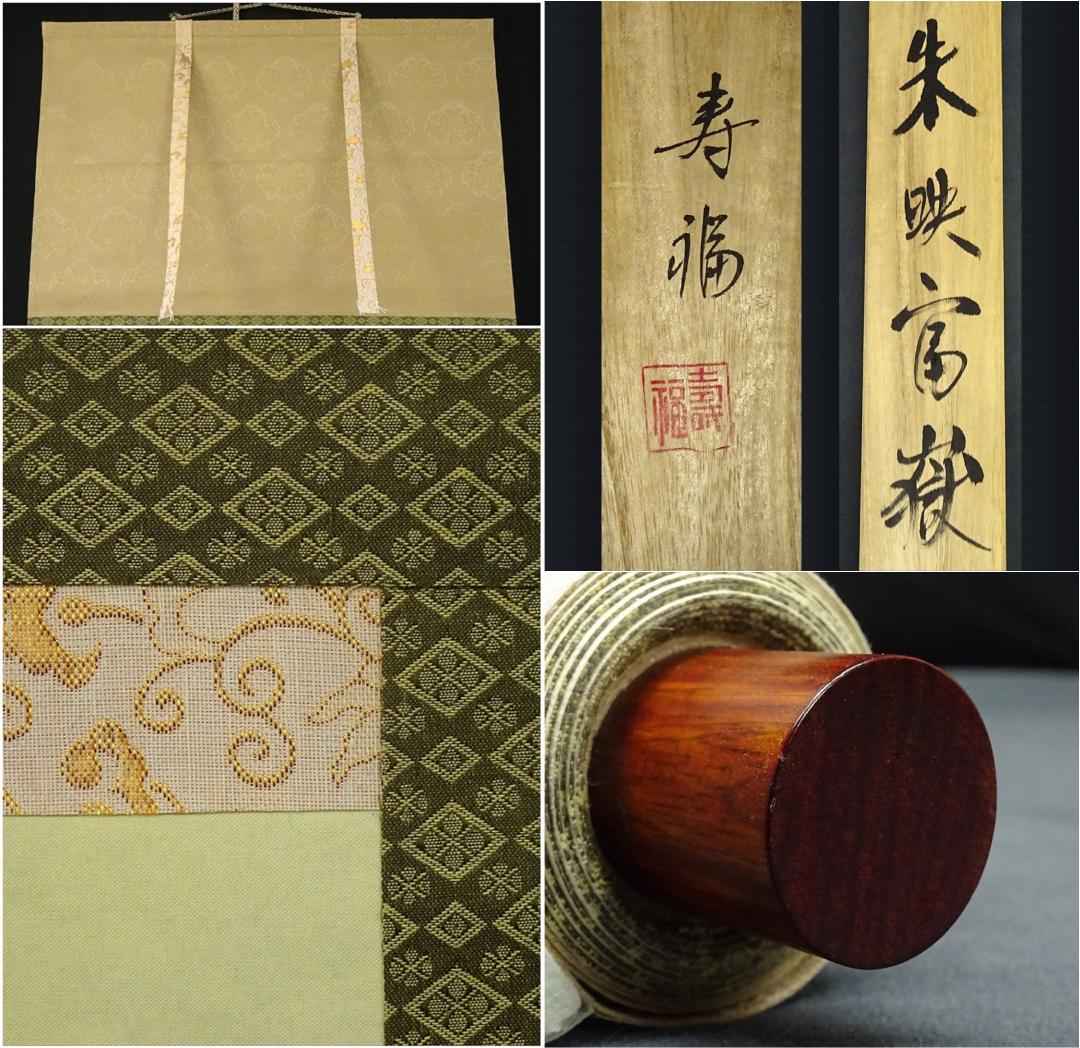 朱映富嶽
寿福
壽福